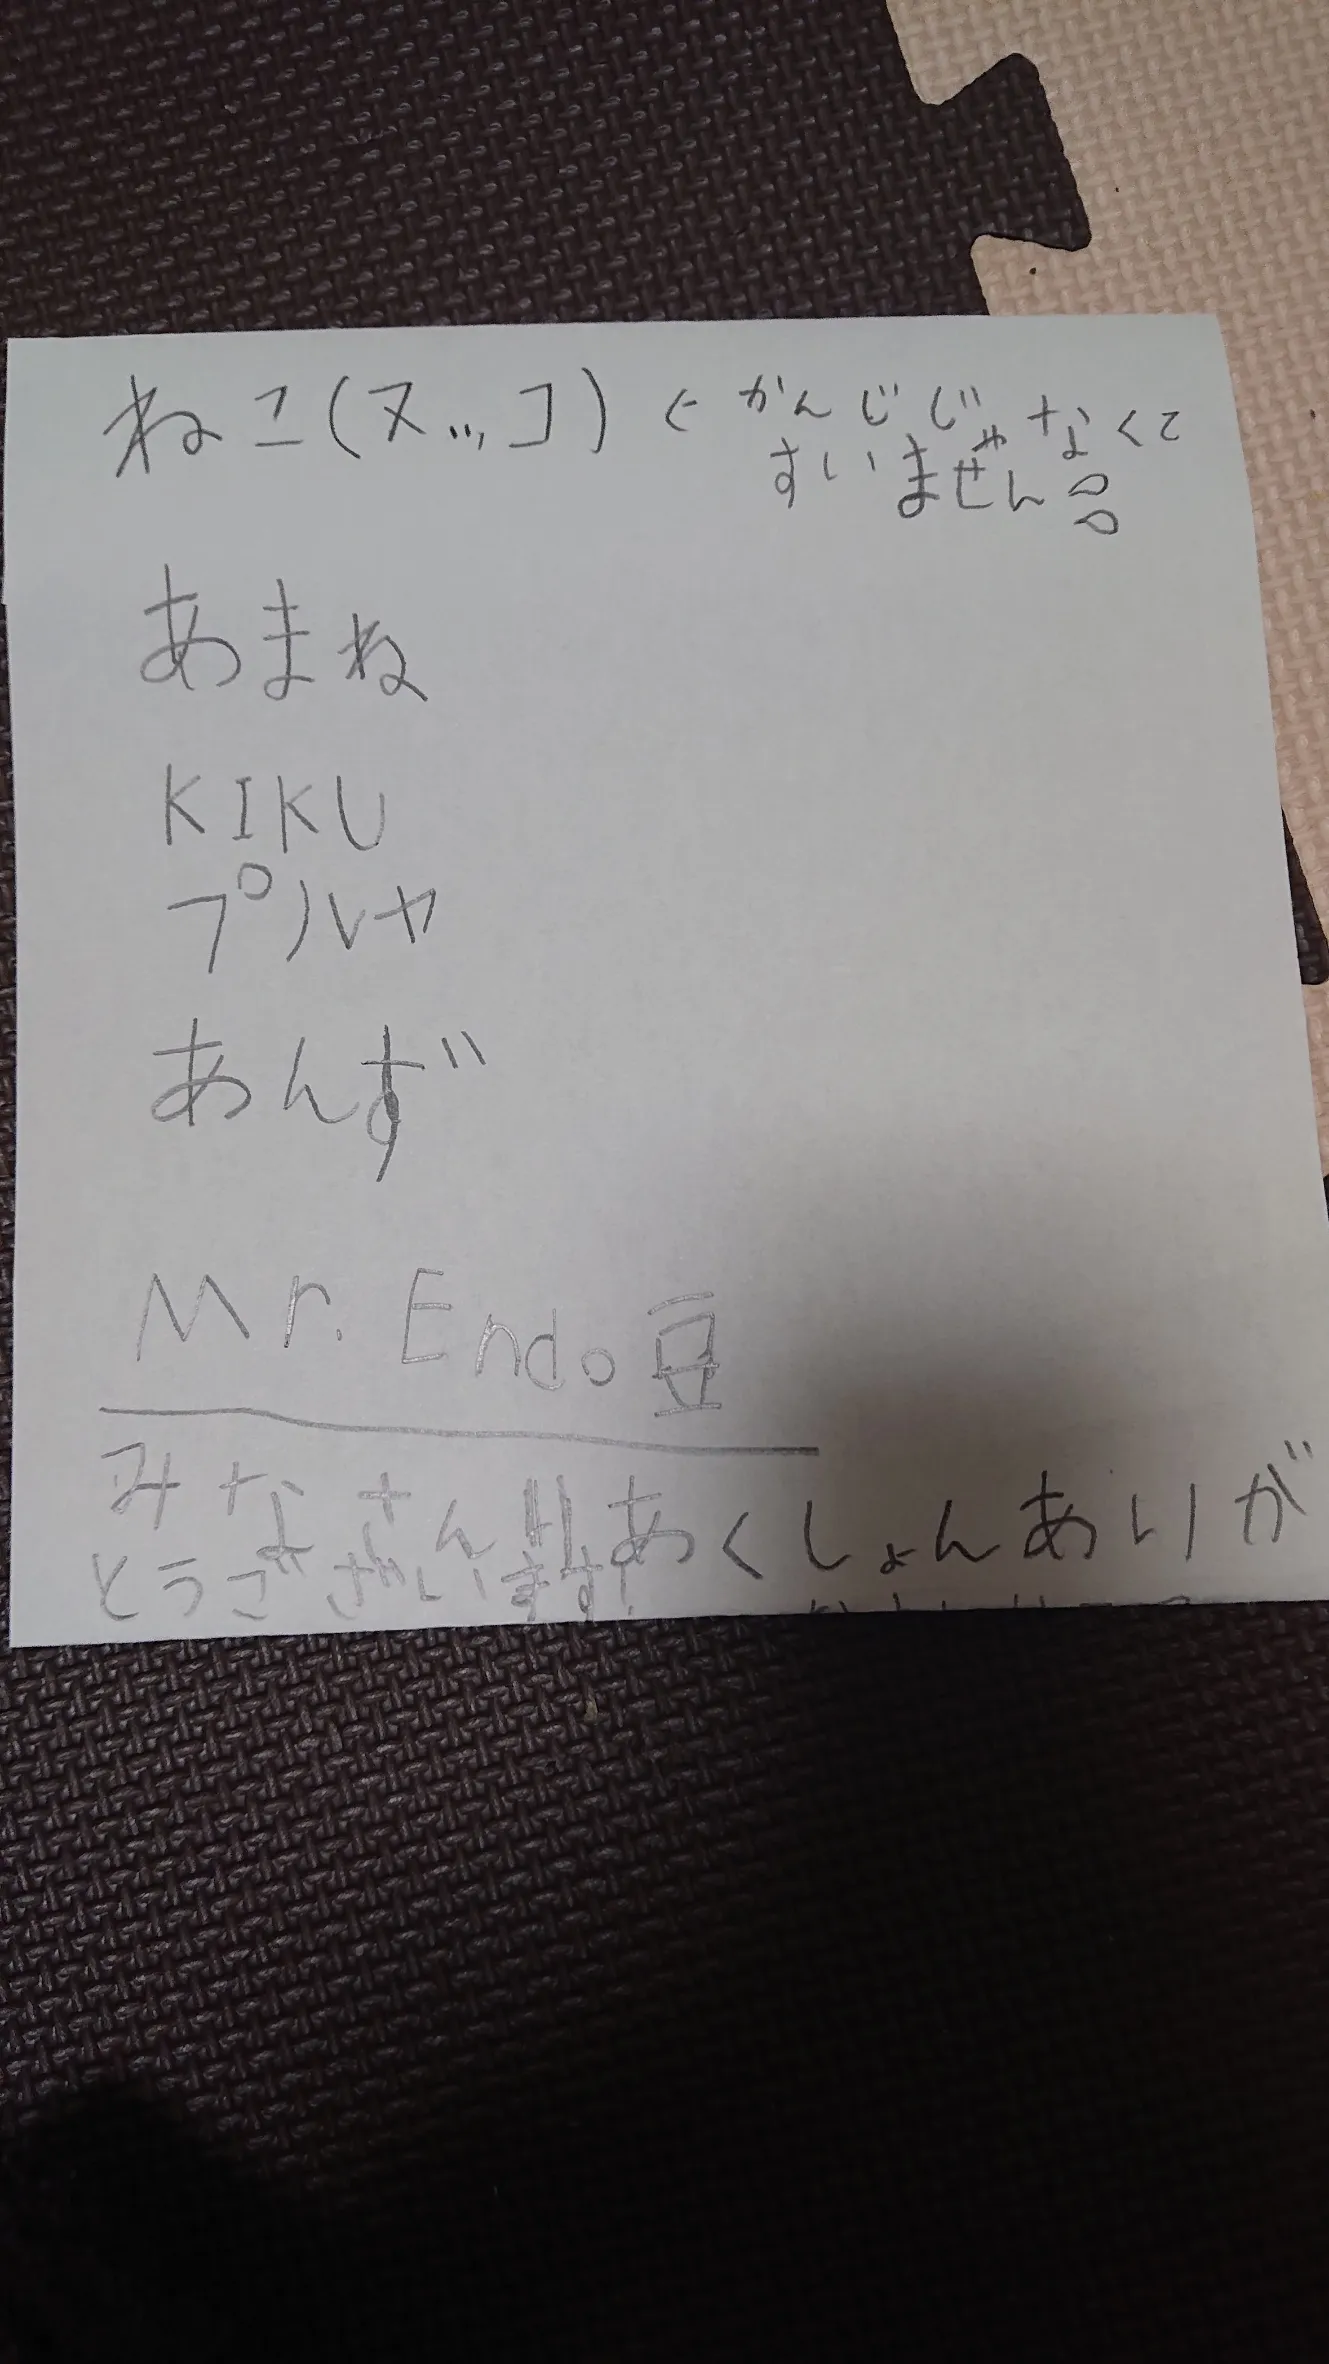 ねこ(ヌッコ)←かんじじゃなくて
すいません
あまね
KIKU
プルヤ
あんず
Mr. Endo豆
みなさん!!あくしょんありが
とうございます!